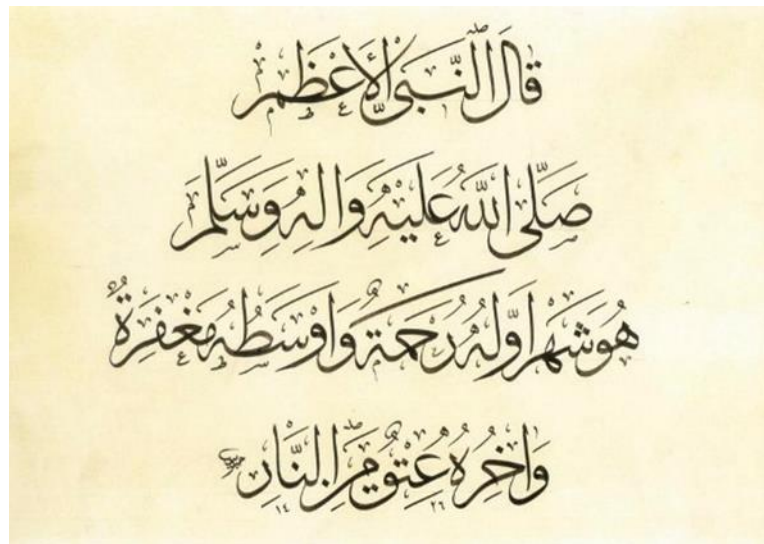 قَالَ النَّبِيُّ الأَعْظَم
صَلَّى اللَّهُ عَلَيْهِ وَآلِهِ وَسَلَّمَ
هُوَ شَهْرٌ أَوَّلُهُ رَحْمَةٌ وَأَوْسَطُهُ مَغْفِرَةٌ
وَآخِرُهُ عِتْقٌ مِنَ النَّارِ
١٤ ٢٦